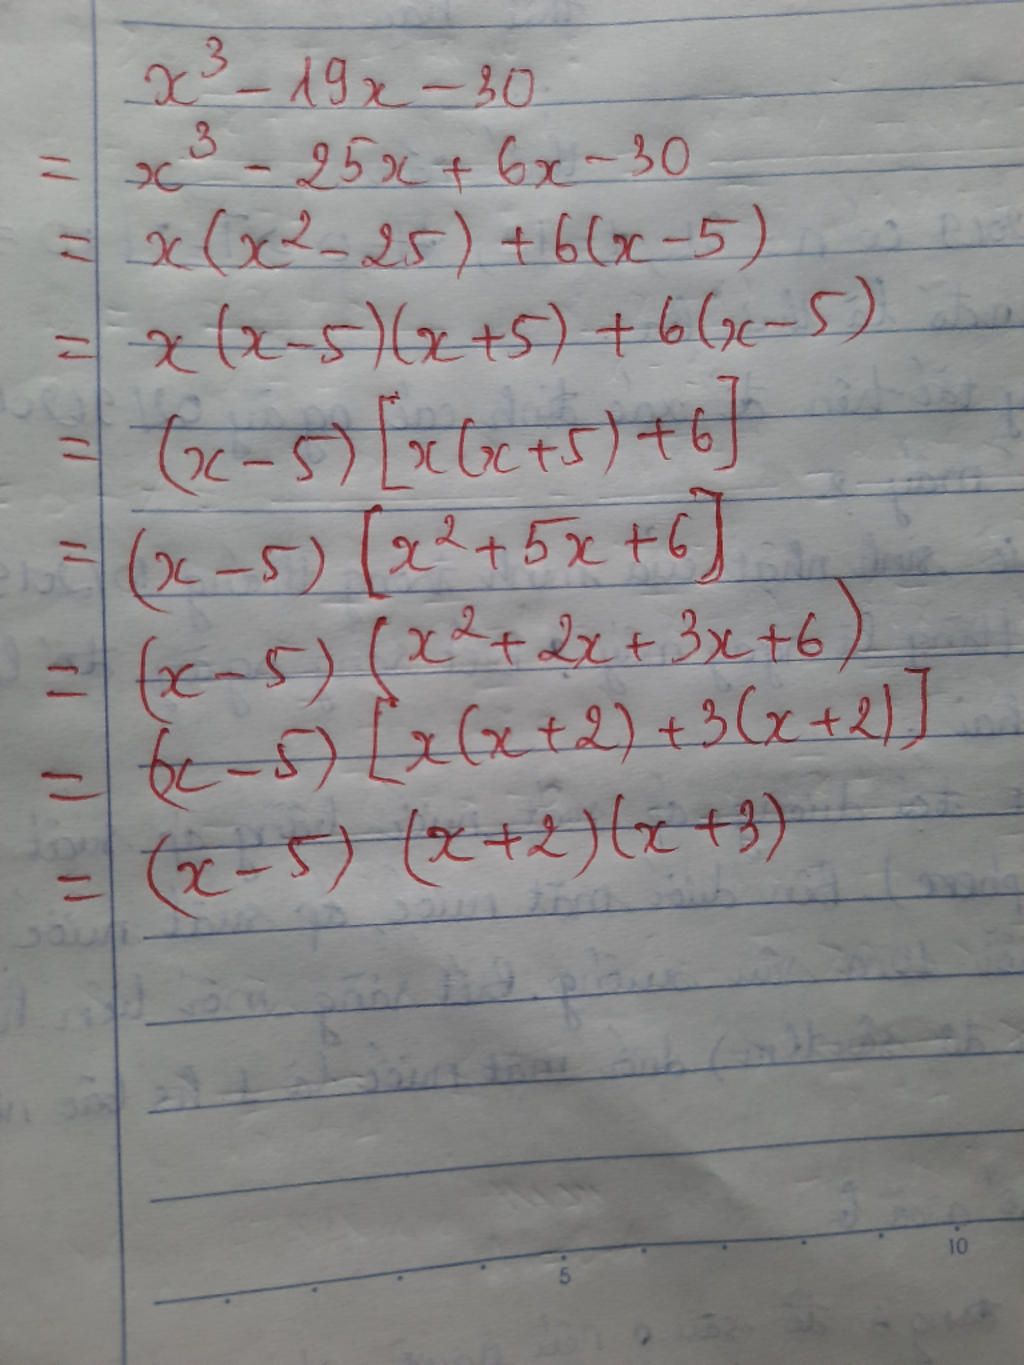 x³ - 19x - 30
= x³ - 25x + 6x - 30
= x(x² - 25) + 6(x - 5)
= x(x - 5)(x + 5) + 6(x - 5)
= (x - 5)[x(x + 5) + 6]
= (x - 5)[x² + 5x + 6]
= (x - 5)(x² + 2x + 3x + 6)
= (x - 5)[x(x + 2) + 3(x + 2)]
= (x - 5)(x + 2)(x + 3)
5 10